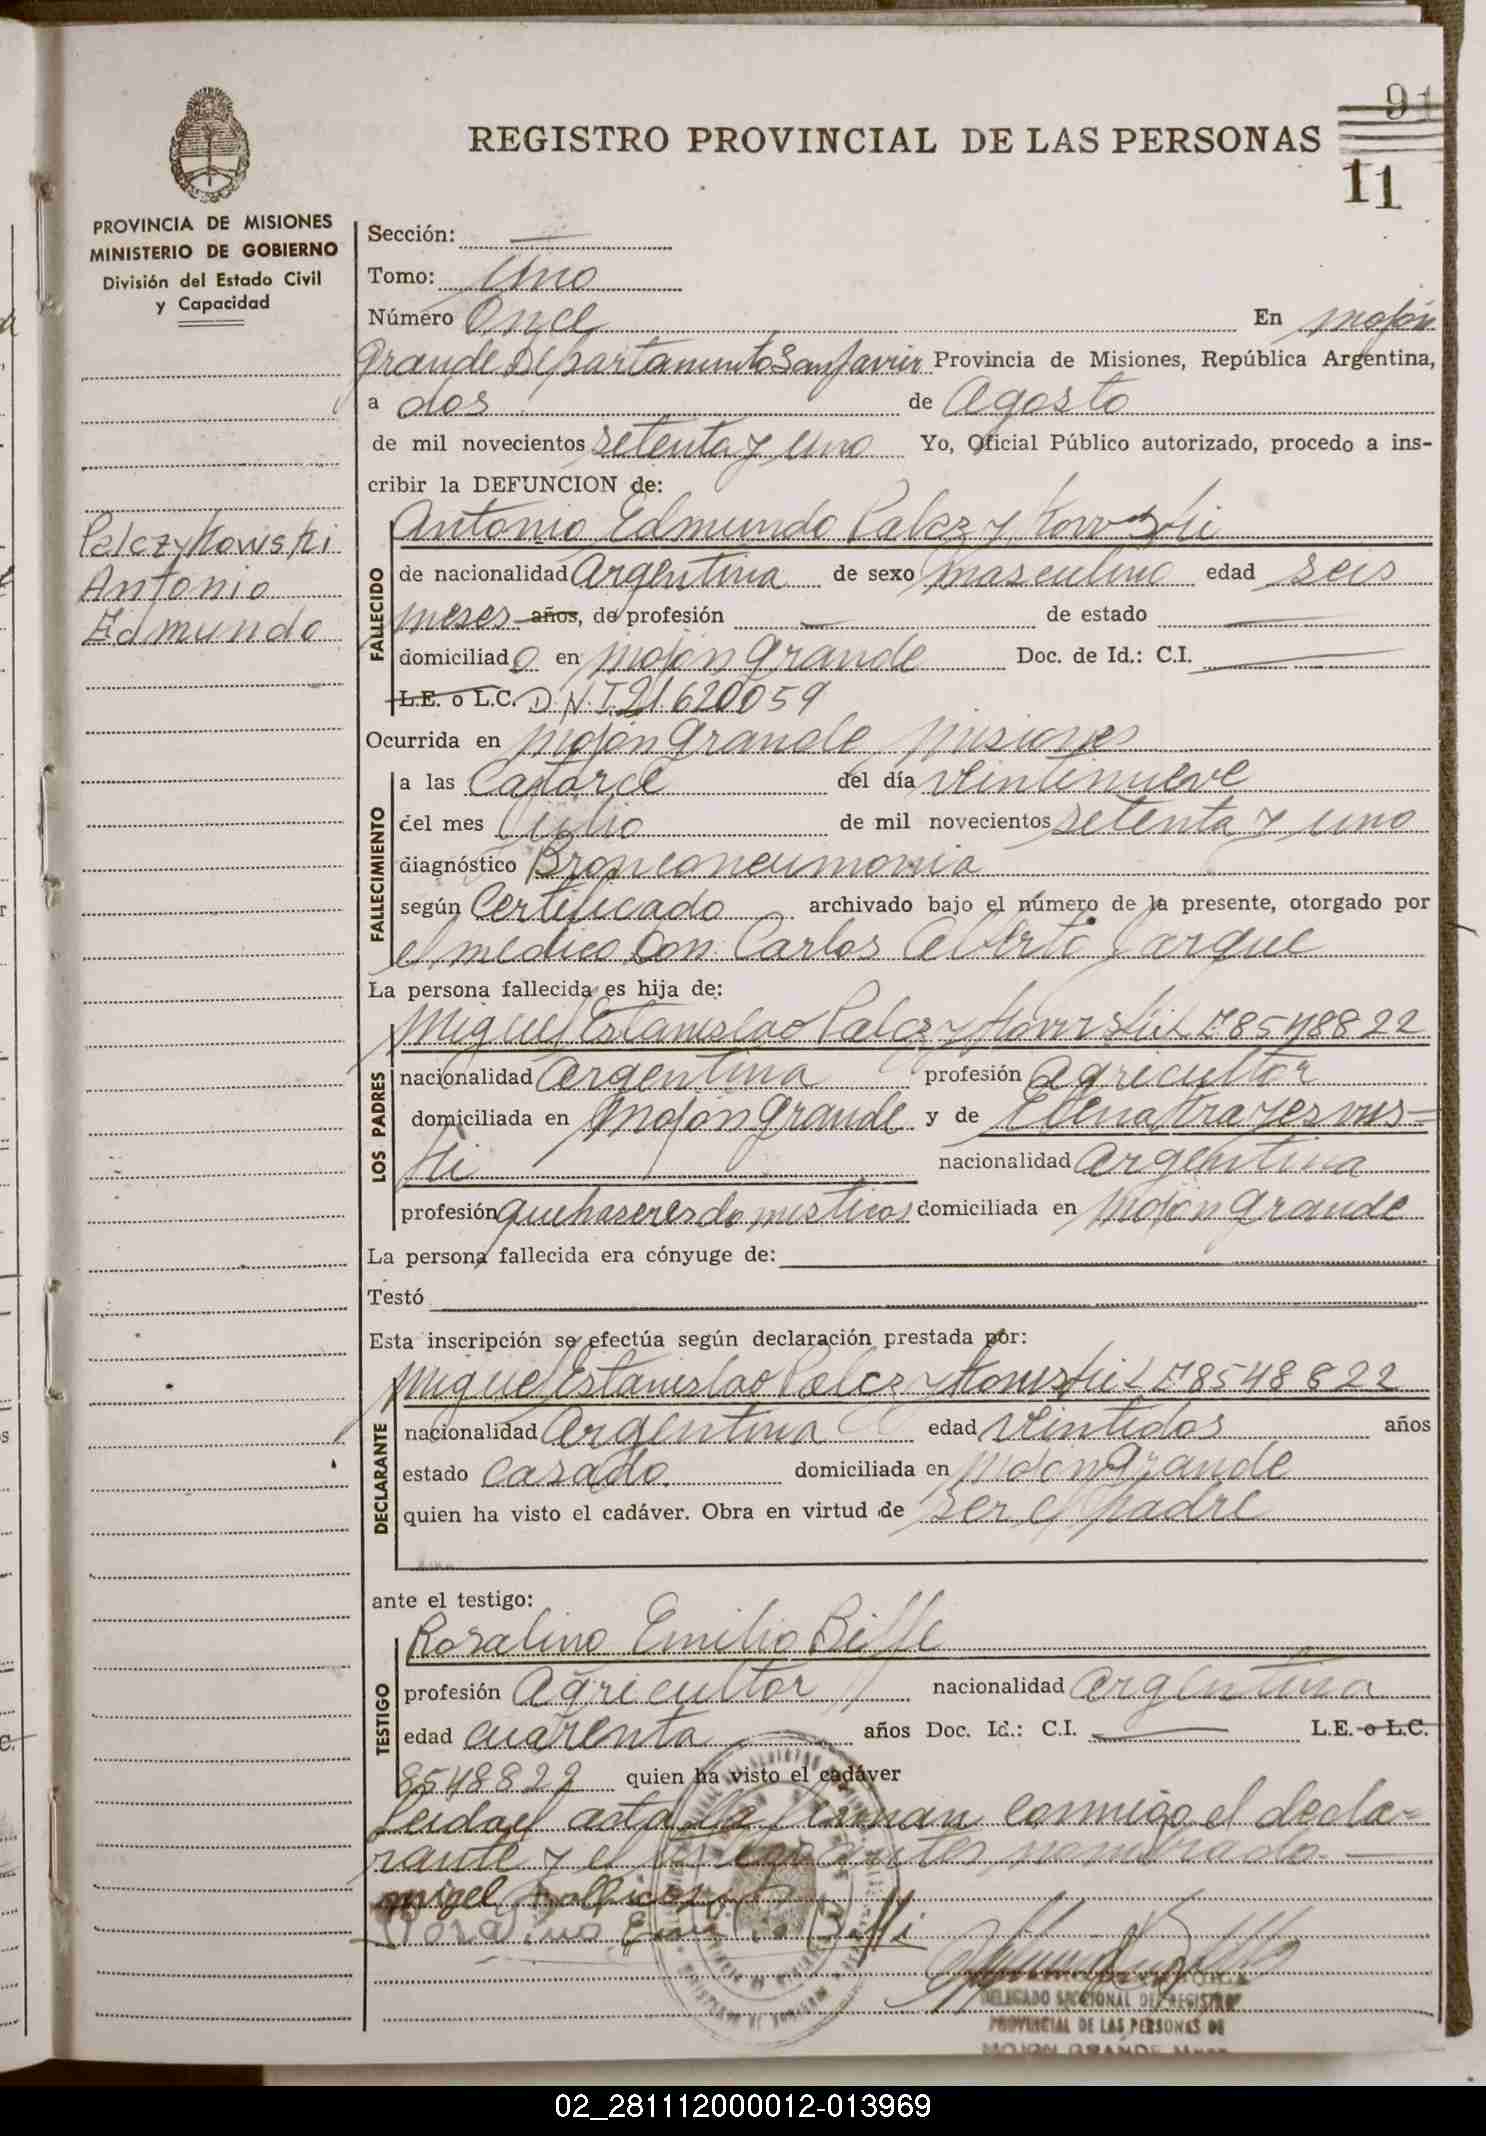 91
REGISTRO PROVINCIAL DE LAS PERSONAS
11
PROVINCIA DE MISIONES
MINISTERIO DE GOBIERNO
División del Estado Civil
y Capacidad
Palczykowski
Antonio
Edmundo
Sección: —
Tomo: Uno
Número Once En mojón
Grande Departamento San Javier Provincia de Misiones, República Argentina,
a dos de Agosto
de mil novecientos setenta y uno Yo, Oficial Público autorizado, procedo a ins-
cribir la DEFUNCION de:
Antonio Edmundo Palczykowski
FALLECIDO
de nacionalidad Argentina de sexo masculino edad seis
meses años, de profesión — de estado —
domiciliado en mojón grande Doc. de Id.: C.I. —
L.E. o L.C. D.N.I. 21.620059
Ocurrida en mojón grande, misiones
FALLECIMIENTO
a las Catorce del día veintinueve
del mes julio de mil novecientos setenta y uno
diagnóstico Bronconeumonia
según Certificado archivado bajo el número de la presente, otorgado por
el medico Don Carlos Alberto Jarque
La persona fallecida es hija de:
LOS PADRES
Miguel Estanislao Palczykowski L E 8548822
nacionalidad Argentina profesión Agricultor
domiciliada en mojón grande y de Elena
ki nacionalidad Argentina
profesión quehaseres domesticos domiciliada en mojón grande
La persona fallecida era cónyuge de:
Testó
Esta inscripción se efectúa según declaración prestada por:
DECLARANTE
Miguel Estanislao Palczykowski L E 8548822
nacionalidad Argentina edad veintidos años
estado casado domiciliada en mojón grande
quien ha visto el cadáver. Obra en virtud de ser el padre
ante el testigo:
TESTIGO
Rosalino Emilio Biffe
profesión Agricultor nacionalidad argentina
edad cuarenta años Doc. Id.: C.I. — L.E. o L.C.
8548822 quien ha visto el cadáver
Leida el acta la firman conmigo el decla-
rante y el testigo antes nombrado. —
migel
Rosalino Emilio Biffi
DELEGADO SECCIONAL DEL REGISTRO
PROVINCIAL DE LAS PERSONAS DE
MOJON GRANDE
02_281112000012-013969